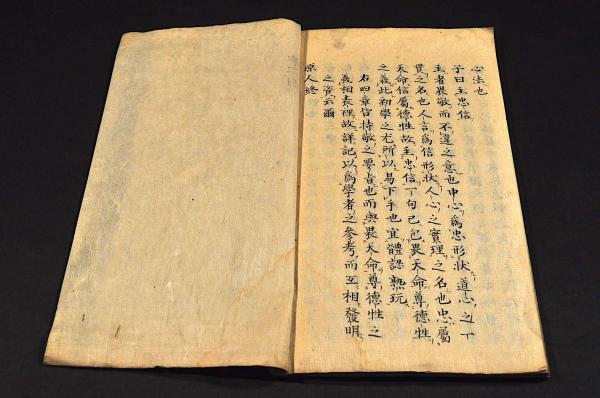 心法也
子曰主忠信
主者畏敬而不違之意也中心爲忠形狀道心之一
貫之名也人言爲信形狀人心之實理之名也忠屬
天命信屬德性故主忠信一句已包畏天命尊德性
之義此初學之尤所以易下手也宜體認熟玩
右四章皆持敬之要旨也而與畏天命尊德性之
義相表裡故詳記以爲學者之參考而互相發明
之資云爾
原人終